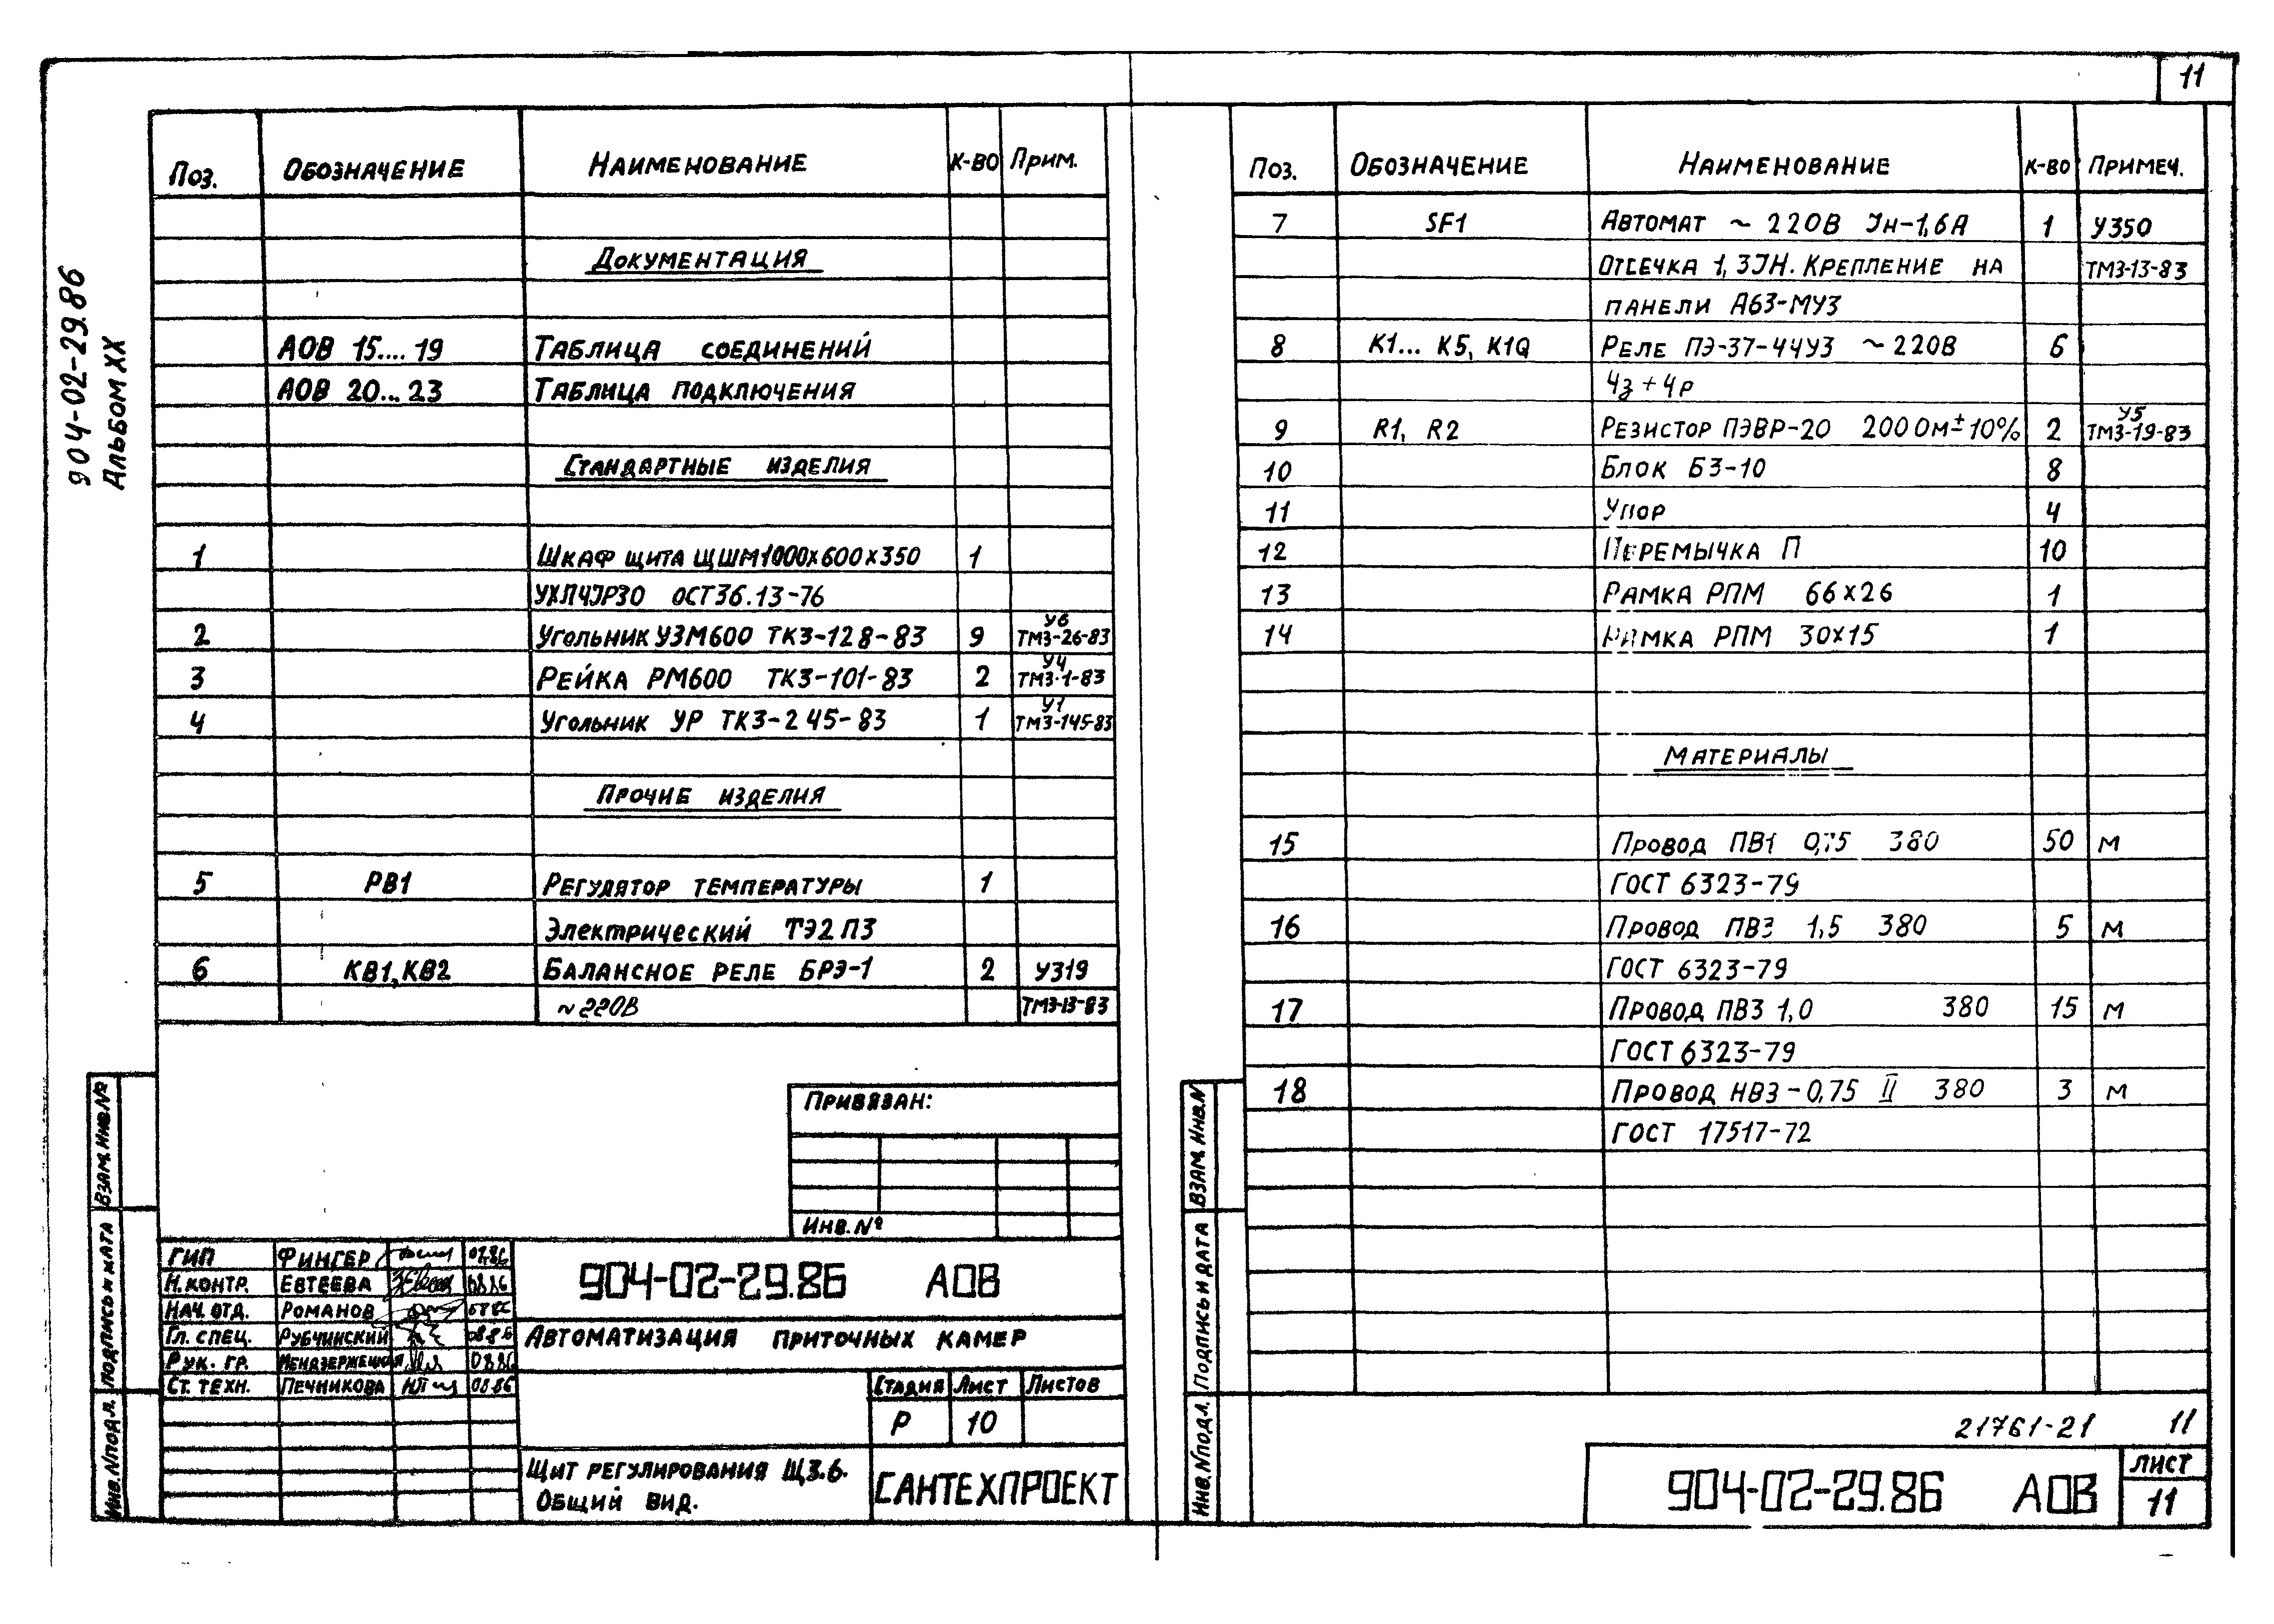 11
904-02-29.86
Альбом XX
Поз. Обозначение Наименование К-во Прим.
Документация
АОВ 15.... 19 Таблица соединений
АОВ 20... 23 Таблица подключения
Стандартные изделия
1 Шкаф щита ЩШМ1000х600х350 1
УХЛ4JP30 ОСТ36.13-76
2 Угольник УЗМ600 ТКЗ-128-83 9 У6 ТМЗ-26-83
3 Рейка РМ600 ТКЗ-101-83 2 У4 ТМЗ-1-83
4 Угольник УР ТКЗ-245-83 1 У1 ТМЗ-145-83
Прочие изделия
5 РВ1 Регулятор температуры 1
Электрический ТЭ2ПЗ
6 КВ1, КВ2 Балансное реле БРЭ-1 2 У319
~220В ТМЗ-13-83
Привязан:
Инв.№
ГИП Фингер 07.86
Н.контр. Евтеева 08.86
Нач. отд. Романов
Гл. спец. Рубчинский 08.86
Рук. гр. 08.86
Ст. техн. Печникова 08.86
904-02-29.86 АОВ
Автоматизация приточных камер
Стадия Лист Листов
Р 10
Щит регулирования ЩЗ.6.
Общий вид.
САНТЕХПРОЕКТ
Взам. инв.№
Подпись и дата
Инв.№подл.
Поз. Обозначение Наименование К-во Примеч.
7 SF1 Автомат ~ 220В Jн-1,6А 1 У350
Отсечка 1,3JН. Крепление на ТМЗ-13-83
панели А63-МУ3
8 К1... К5, К1Q Реле ПЭ-37-44У3 ~220В 6
4з+4р
9 R1, R2 Резистор ПЭВР-20 200Ом±10% 2 У5 ТМЗ-19-83
10 Блок БЗ-10 8
11 Упор 4
12 Перемычка П 10
13 Рамка РПМ 66х26 1
14 Рамка РПМ 30х15 1
Материалы
15 Провод ПВ1 0,75 380 50 м
ГОСТ 6323-79
16 Провод ПВ3 1,5 380 5 м
ГОСТ 6323-79
17 Провод ПВ3 1,0 380 15 м
ГОСТ 6323-79
18 Провод НВ3-0,75 II 380 3 м
ГОСТ 17517-72
Взам. Инв.N
Подпись и дата
Инв.Nподл.
21761-21 11
904-02-29.86 АОВ
Лист
11